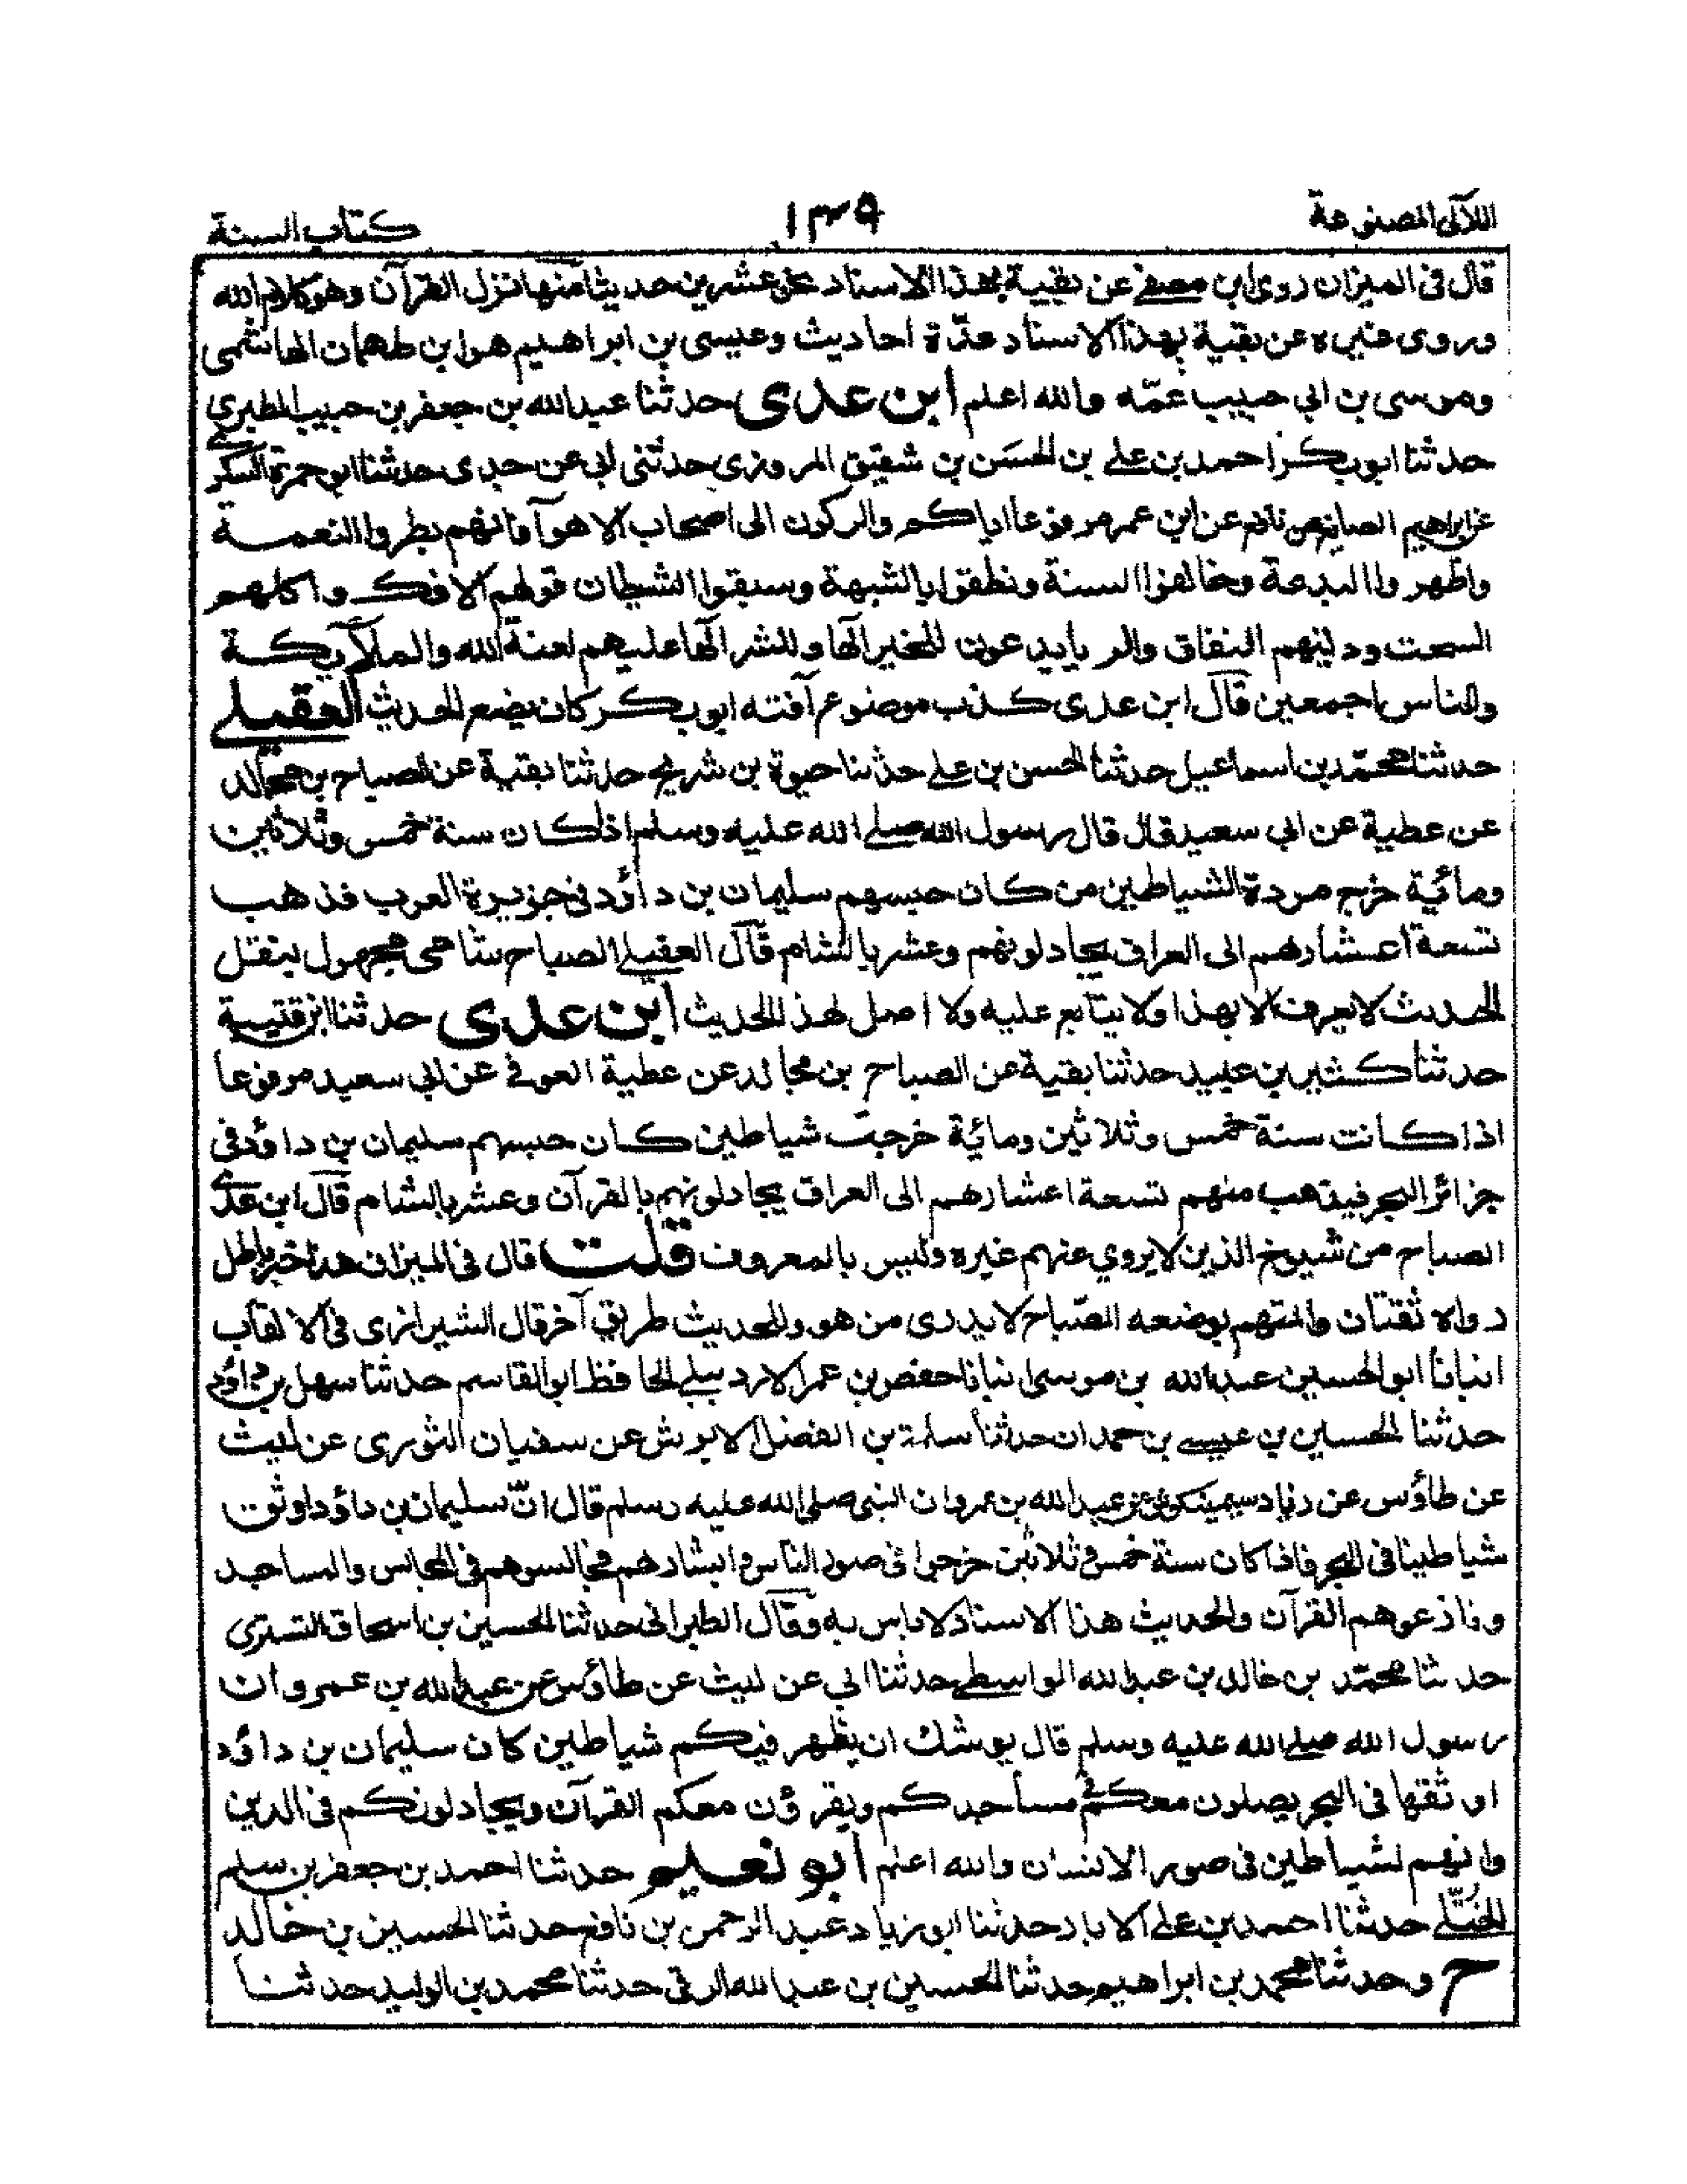 اللآلى المصنوعة
١٣٩
كتاب السنة
قال فى الميزان روى ابن مصفے عن بقيية بهذا الاسناد نحو عشرين حديثا منها نزل القرآن وهو كلام الله
وروى غيره عن بقية بهذا الاسناد عدّة احاديث وعيسى بن ابراهيم هو ابن طهمان الهاشمى
وموسى بن ابي حبيب عمّه والله اعلم ابن عدى حدثنا عبدالله بن جعفر بن حبيب الطبري
حدثنا ابوبكر احمد بن علے بن الحسَن بن شقيق المروزى حدثنى ابى عن جدى حدثنا ابوحمزة السكرے
عن ابراهيم الصايغ عن نافع عن ابن عمر مرفوعا اياكم والركون الى اصحاب الاهوآ فانهم بطروا النعمة
واظهروا البدعة وخالفوا السنة ونطقوا بالشبهة وسبقوا الشيطان قولهم الافك واكلهم
السحت ودينهم النفاق والريا يدعون للخير الٓها وللشر الٓها عليهم لعنة الله والملآئكة
والناس اجمعين قال ابن عدى كذب موضوع آفته ابوبكر كان يضع الحديث العقيلے
حدثنا محمّد بن اسماعيل حدثنا الحسن بن علے حدثنا حيوة بن شريح حدثنا بقية عن الصباح بن مجالد
عن عطية عن ابى سعيد قال قال رسول الله صلے الله عليه وسلم اذا كان سنة خمس وثلاثين
ومائية خرج مردة الشياطين من كان حبسهم سليمان بن داؤد فى جزيرة العرب فذهب
تسعة اعشارهم الى العراق يجادلونهم وعشر بالشام قال العقيلے الصباح شامى مجهول بنقل
الحديث لا يعرف الا بهذا ولا يتابع عليه ولا اصل لهذا الحديث ابن عدى حدثنا ابن قتيبة
حدثنا كثير بن عبيد حدثنا بقية عن الصباح بن مجالد عن عطية العوفى عن ابى سعيد مرفوعا
اذا كانت سنة خمس وثلاثين ومائية خرجت شياطين كان حبسهم سليمان بن داؤد فى
جزائر البحر فيذهب منهم تسعة اعشارهم الى العراق يجادلونهم بالقرآن وعشر بالشام قال ابن عدے
الصباح من شيوخ الذين لا يروي عنهم غيره وليس بالمعروف قلت قال فى الميزان هذا خبر باطل
رواه ثقتان والمتهم بوضعه الصّباح لا يدرى من هو وللحديث طريق آخر قال الشيرازى فى الالقاب
انبانا ابو الحسين عبدالله بن موسى انبانا حفص بن عمر الاردبيلے الحافظ ابوالقاسم حدثنا سهل بن داؤد
حدثنا الحسين بن عيسے بن حمدان حدثنا سلمة بن الفضل الابرش عن سفيان الثورى عن ليث
عن طاؤس عن زياد سيمينكوش عن عبدالله بن عمرو ان النبى صلى الله عليه وسلم قال انّ سليمان بن داؤد اوثق
شياطينا فى البحر فاذا كان سنة خمس وثلاثين خرجوا فى صور الناس وابشارهم فجالسوهم فى المجالس والمساجد
ونازعوهم القرآن والحديث هذا الاسناد لا باس به وقال الطبرانى حدثنا الحسين بن اسحاق التسترى
حدثنا محمّد بن خالد بن عبدالله الواسطے حدثنا ابى عن ليث عن طاؤس عن عبدالله بن عمرو ان
رسول الله صلے الله عليه وسلم قال يوشك ان يظهر فيكم شياطين كان سليمان بن داؤد
اوثقها فى البحر يصلون معكم فى مساجدكم ويقرؤن معكم القرآن ويجادلونكم فى الدين
وانهم لشياطين فى صور الانسان والله اعلم ابو نعيم حدثنا احمد بن جعفر بن سلم
الخُتّلے حدثنا احمد بن علے الابار حدثنا ابو زياد عبدالرحمن بن نافع حدثنا الحسين بن خالد
ح وحدثنا محمد بن ابراهيم حدثنا الحسين بن عبدالله الرقى حدثنا محمد بن الوليد حدثنا